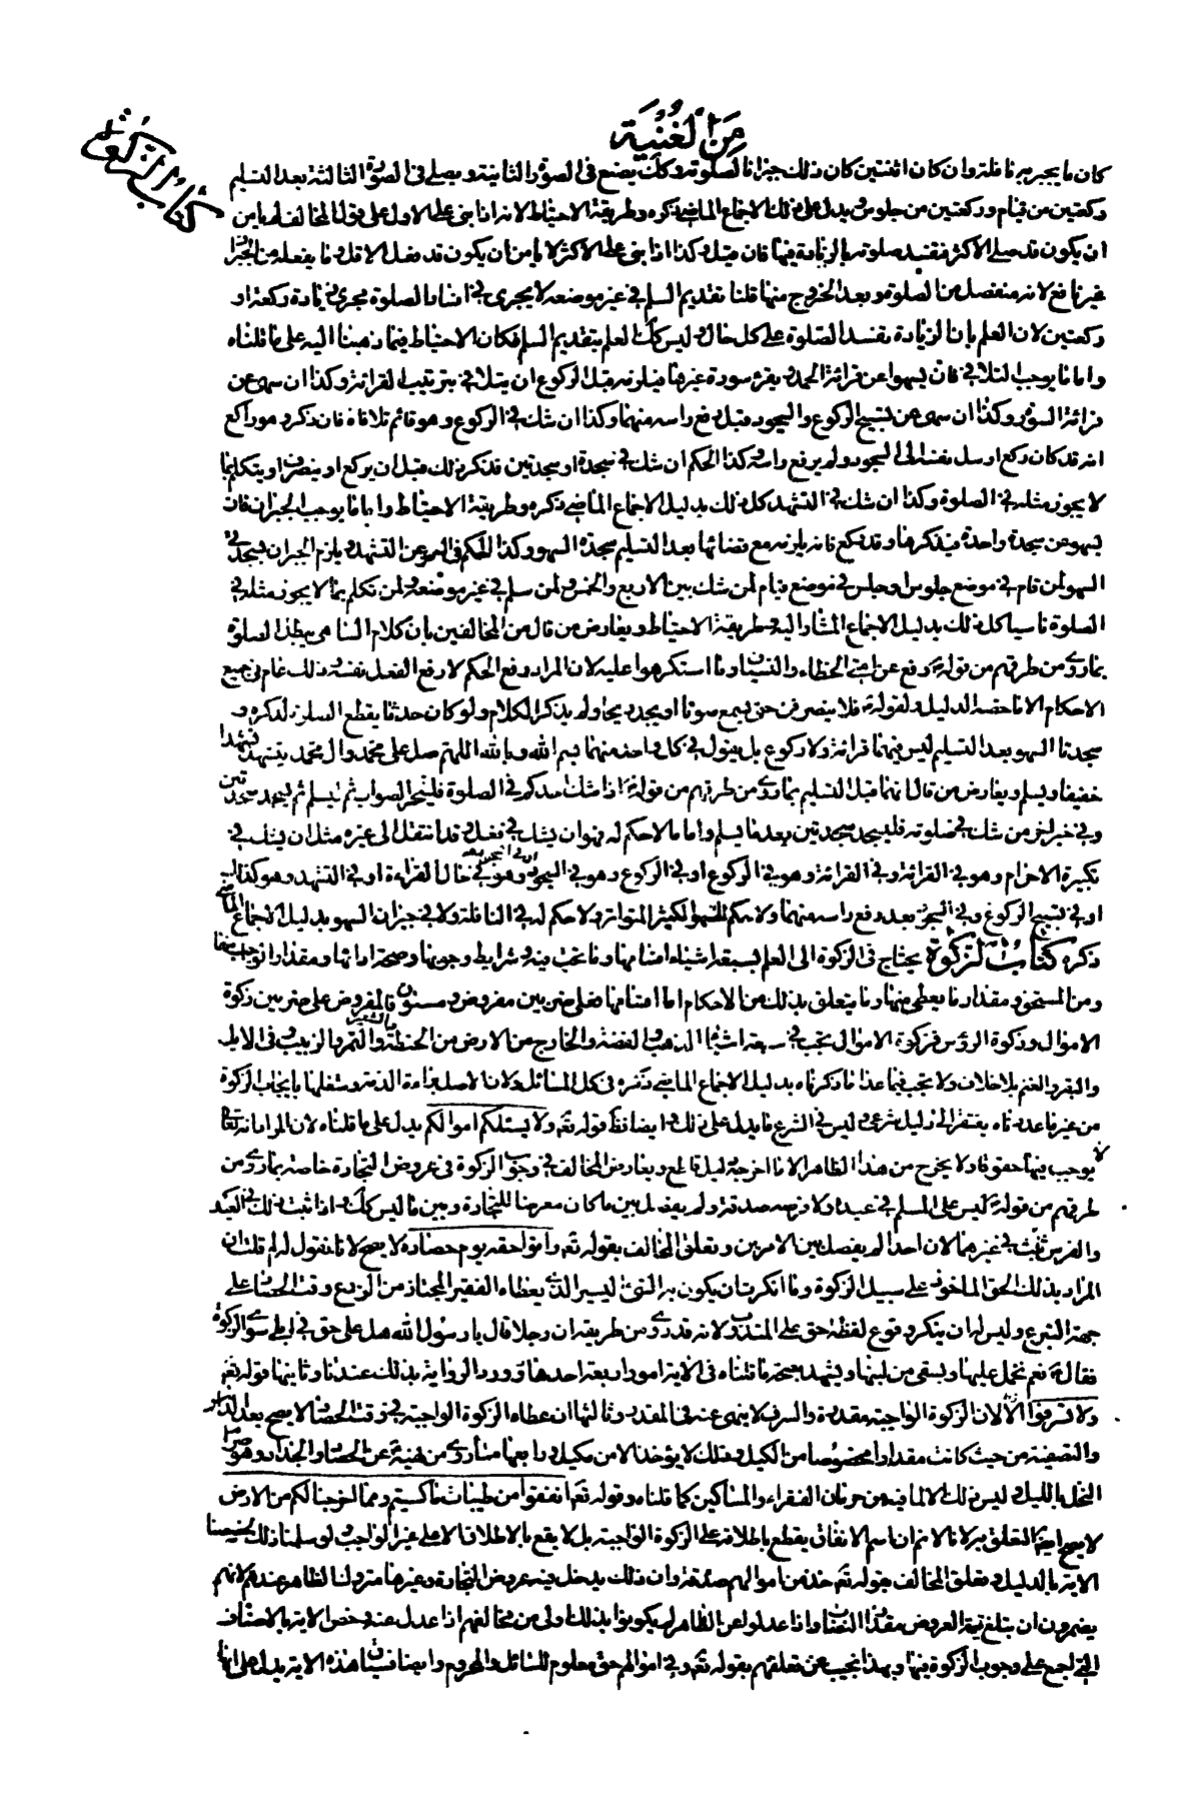 من الغنية
كتاب الزكوة
كان ما يجبر به نافلة وان كان اثنتين كان ذلك جبرانا لصلوته وكك يصنع فى الصورة الثانية ويصلى فى الصورة الثالثة بعد التسليم
ركعتين من قيام وركعتين من جلوس يدل على ذلك الاجماع الماضى ذكره وطريقة الاحتياط لانه اذا بنى على الاول على قول المخالف لم يأمن
ان يكون قد صلى الاكثر فتفسد صلوته بالزيادة فيها فان قيل وكذا اذا بنى على الاكثر لا يأمن ان يكون قد فعل الاقل وما يفعله من الجبران
غير نافع لانه منفصل من الصلوة وبعد الخروج منها قلنا تقديم السلم فى غير موضعه لا يجرى فى افساد الصلوة مجرى زيادة ركعة او
ركعتين لان العلم بان الزيادة تفسد الصلوة على كل حال وليس كك العلم بتقديم السلم فكان الاحتياط فيما ذهبنا اليه على ما قلناه
واما ما يوجب التلافى فان يسهو عن قرائة الحمد ويقرء سورة غيرها فيلزمه قبل الركوع ان يتلافى بترتيب القرائة وكذا ان سهى عن
قرائة السورة وكذا ان سهى عن تسبيح الركوع والسجود قبل رفع راسه منهما وكذا ان شك فى الركوع وهو قائم تلافاه فان ذكر وهو راكع
انه قد كان ركع ارسل نفسه الى السجود ولم يرفع راسه وكذا الحكم ان شك فى سجدة او سجدتين فذكر ذلك قبل ان يركع او ينصرف او يتكلم بما
لا يجوز مثله فى الصلوة وكذا ان شك فى التشهد كل ذلك بدليل الاجماع الماضى ذكره وطريقة الاحتياط واما ما يوجب الجبران فان
يسهو عن سجدة واحدة فيذكرها وقد ركع فانه يلزمه مع قضائها بعد التسليم سجدتا السهو وكذا الحكم فى السهو عن التشهد ويلزم الجبران بسجدتى
السهو لمن قام فى موضع جلوس او جلس فى موضع قيام ولمن شك بين الاربع والخمس ولمن سلم فى غير موضعه ولمن تكلم بما لا يجوز مثله فى
الصلوة ناسيا كل ذلك بدليل الاجماع المشار اليه وطريقة الاحتياط ويعارض من قال من المخالفين بان كلام الساهى يبطل الصلوة
بما روى من طرقهم من قوله رفع عن امتى الخطاء والنسيان وما استكرهوا عليه لان المراد رفع الحكم لا رفع الفعل نفسه وذلك عام فى جميع
الاحكام الا ما خصه الدليل ولقوله فلا ينصرفن حتى يسمع صوتا او يجد ريحا ولم يذكر الكلام ولو كان حدثا يقطع الصلوة لذكره و
سجدتا السهو بعد التسليم ليس فيهما قرائة ولا ركوع بل يقول فى كل واحدة منهما بسم الله وبالله اللهم صل على محمد وال محمد ويتشهد تشهدا
خفيفا ويسلم ويعارض من قال انهما قبل التسليم بما روى من طرقهم من قوله اذا شك احدكم فى الصلوة فليتحر الصواب ثم ليسلم ثم ليسجد سجدتين
وفى خبر اخر من شك فى صلوته فليسجد سجدتين بعد ما يسلم واما ما لا حكم له فهو ان يشك فى فعل وقد انتقل الى غيره مثل ان يشك فى
تكبيرة الاحرام وهو فى القرائة وفى القرائة وهو فى الركوع او فى الركوع وهو فى السجود وهو فى حال القراءة او فى التشهد وهو كذلك
او فى تسبيح الركوع وفى السجود بعد رفع راسه منهما ولا حكم للسهو الكثير المتواتر ولا حكم له فى النافلة ولا فى جبران السهو بدليل الاجماع الماضى
ذكره كتاب الزكوة يحتاج فى الزكوة الى العلم بسبعة اشياء اقسامها وما تجب فيه وشرايط وجوبها وصحة ادائها ومقدار الواجب منها
ومن المستحق ومقدار ما يعطى منها وما يتعلق بذلك من الاحكام اما اقسامها فعلى ضربين مفروض ومسنون فالمفروض على ضربين زكوة
الاموال وزكوة الرؤس فزكوة الاموال تجب فى تسعة اشياء الذهب والفضة والخارج من الارض من الحنطة والشعير والتمر والزبيب وفى الابل
والبقر والغنم بلا خلاف ولا تجب فيما عدا ما ذكرناه بدليل الاجماع الماضى ذكره فى كل المسائل ولان الاصل براءة الذمة وشغلها بايجاب الزكوة
من غير ما عددناه يفتقر الى دليل شرعى وليس فى الشرع ما يدل على ذلك وايضا فظ قوله تعـ ولا يسئلكم اموالكم يدل على ما قلناه لان المراد انه تعا
لا يوجب فيها حقوقا ولا يخرج من هذا الظاهر الا ما اخرجه دليل قاطع ويعارض المخالف فى وجوب الزكوة فى عروض التجارة خاصة بما روى من
طرقهم من قوله ليس على المسلم فى عبده ولا فرسه صدقة ولم يفصل بين ما كان معرضا للتجارة وبين ما ليس كك واذا ثبت ذلك فى العبد
والفرس ثبت فى غيرهما لان احدا لم يفصل بين الامرين وتعلق المخالف بقوله تعـ واتوا حقه يوم حصاده لا يصح لانا نقول له لم قلت ان
المراد بذلك الحق الماخوذ على سبيل الزكوة وما انكرت ان يكون به الشئ اليسير الذى يعطاه الفقير المجتاز من الزرع وقت الحصاد على
جهة التبرع وليس له ان ينكر وقوع لفظة حق على المندوب لانه قد روى من طريقه ان رجلا قال يا رسول الله هل على حق فى ابلى سوى الزكوة
فقال نعم تحمل عليها وتسقى من لبنها ويشهد بصحة ما قلناه فى الاية امور اربعة احدها ورود الرواية بذلك عندنا وثانيها قوله تعـ
ولا تسرفوا لان الزكوة الواجبة مقدرة والسرف لا ينهى عنه فى المقدر وثالثها ان عطاء الزكوة الواجبة فى وقت الحصاد لا يصح بعد الدياس
والتصفية من حيث كانت مقدارا مخصوصا من الكيل وذلك لا يؤخذ الا من مكيل ورابعها ما روى من نهيه عن الحصاد والجذاذ وهو صرام
النخل بالليل وليس ذلك الا لما فيه من حرمان الفقراء والمساكين كما قلناه وقوله تعـ انفقوا من طيبات ما كسبتم ومما اخرجنا لكم من الارض
لا يصح ايضا التعلق به لانا لا نم ان اسم الانفاق يقطع باطلاقه على الزكوة الواجبة بل لا يقع بالاطلاق الا على غير الواجب ولو سلمنا ذلك لخصصنا
الاية بالدليل وتعلق المخالف بقوله تعـ خذ من اموالهم صدقة وان ذلك يدخل فيه عروض التجارة وغيرها متروك الظاهر عندهم لانهم
يضمرون ان يبلغ قيمة العروض مقدار النصاب واذا عدلوا عن الظاهر لم يكونوا بذلك اولى من مخالفهم اذا عدل عنه وخص الاية بالاصناف
التى اجمع على وجوب الزكوة فيها وبهذا يجيب عن تعلقهم بقوله تعـ وفى اموالهم حق معلوم للسائل والمحروم وايضا فسياق هذه الاية يدل على انها